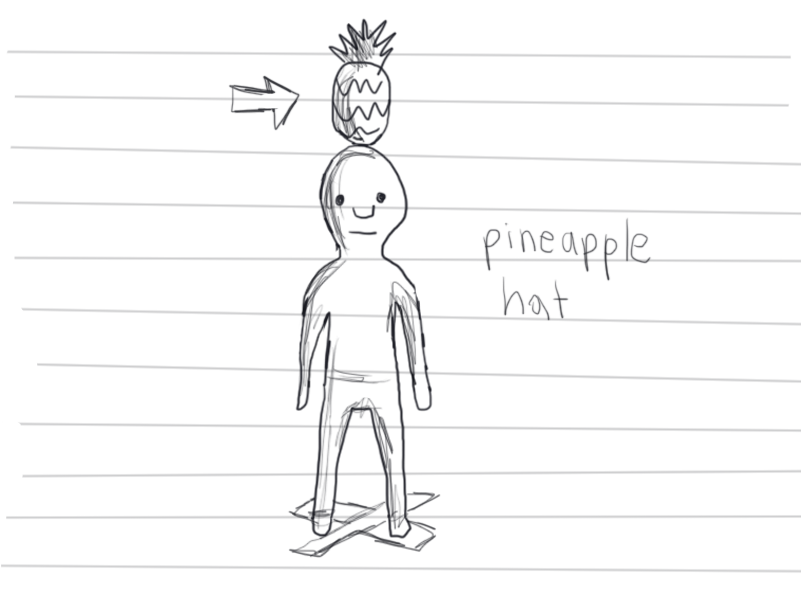 pineapple
hat